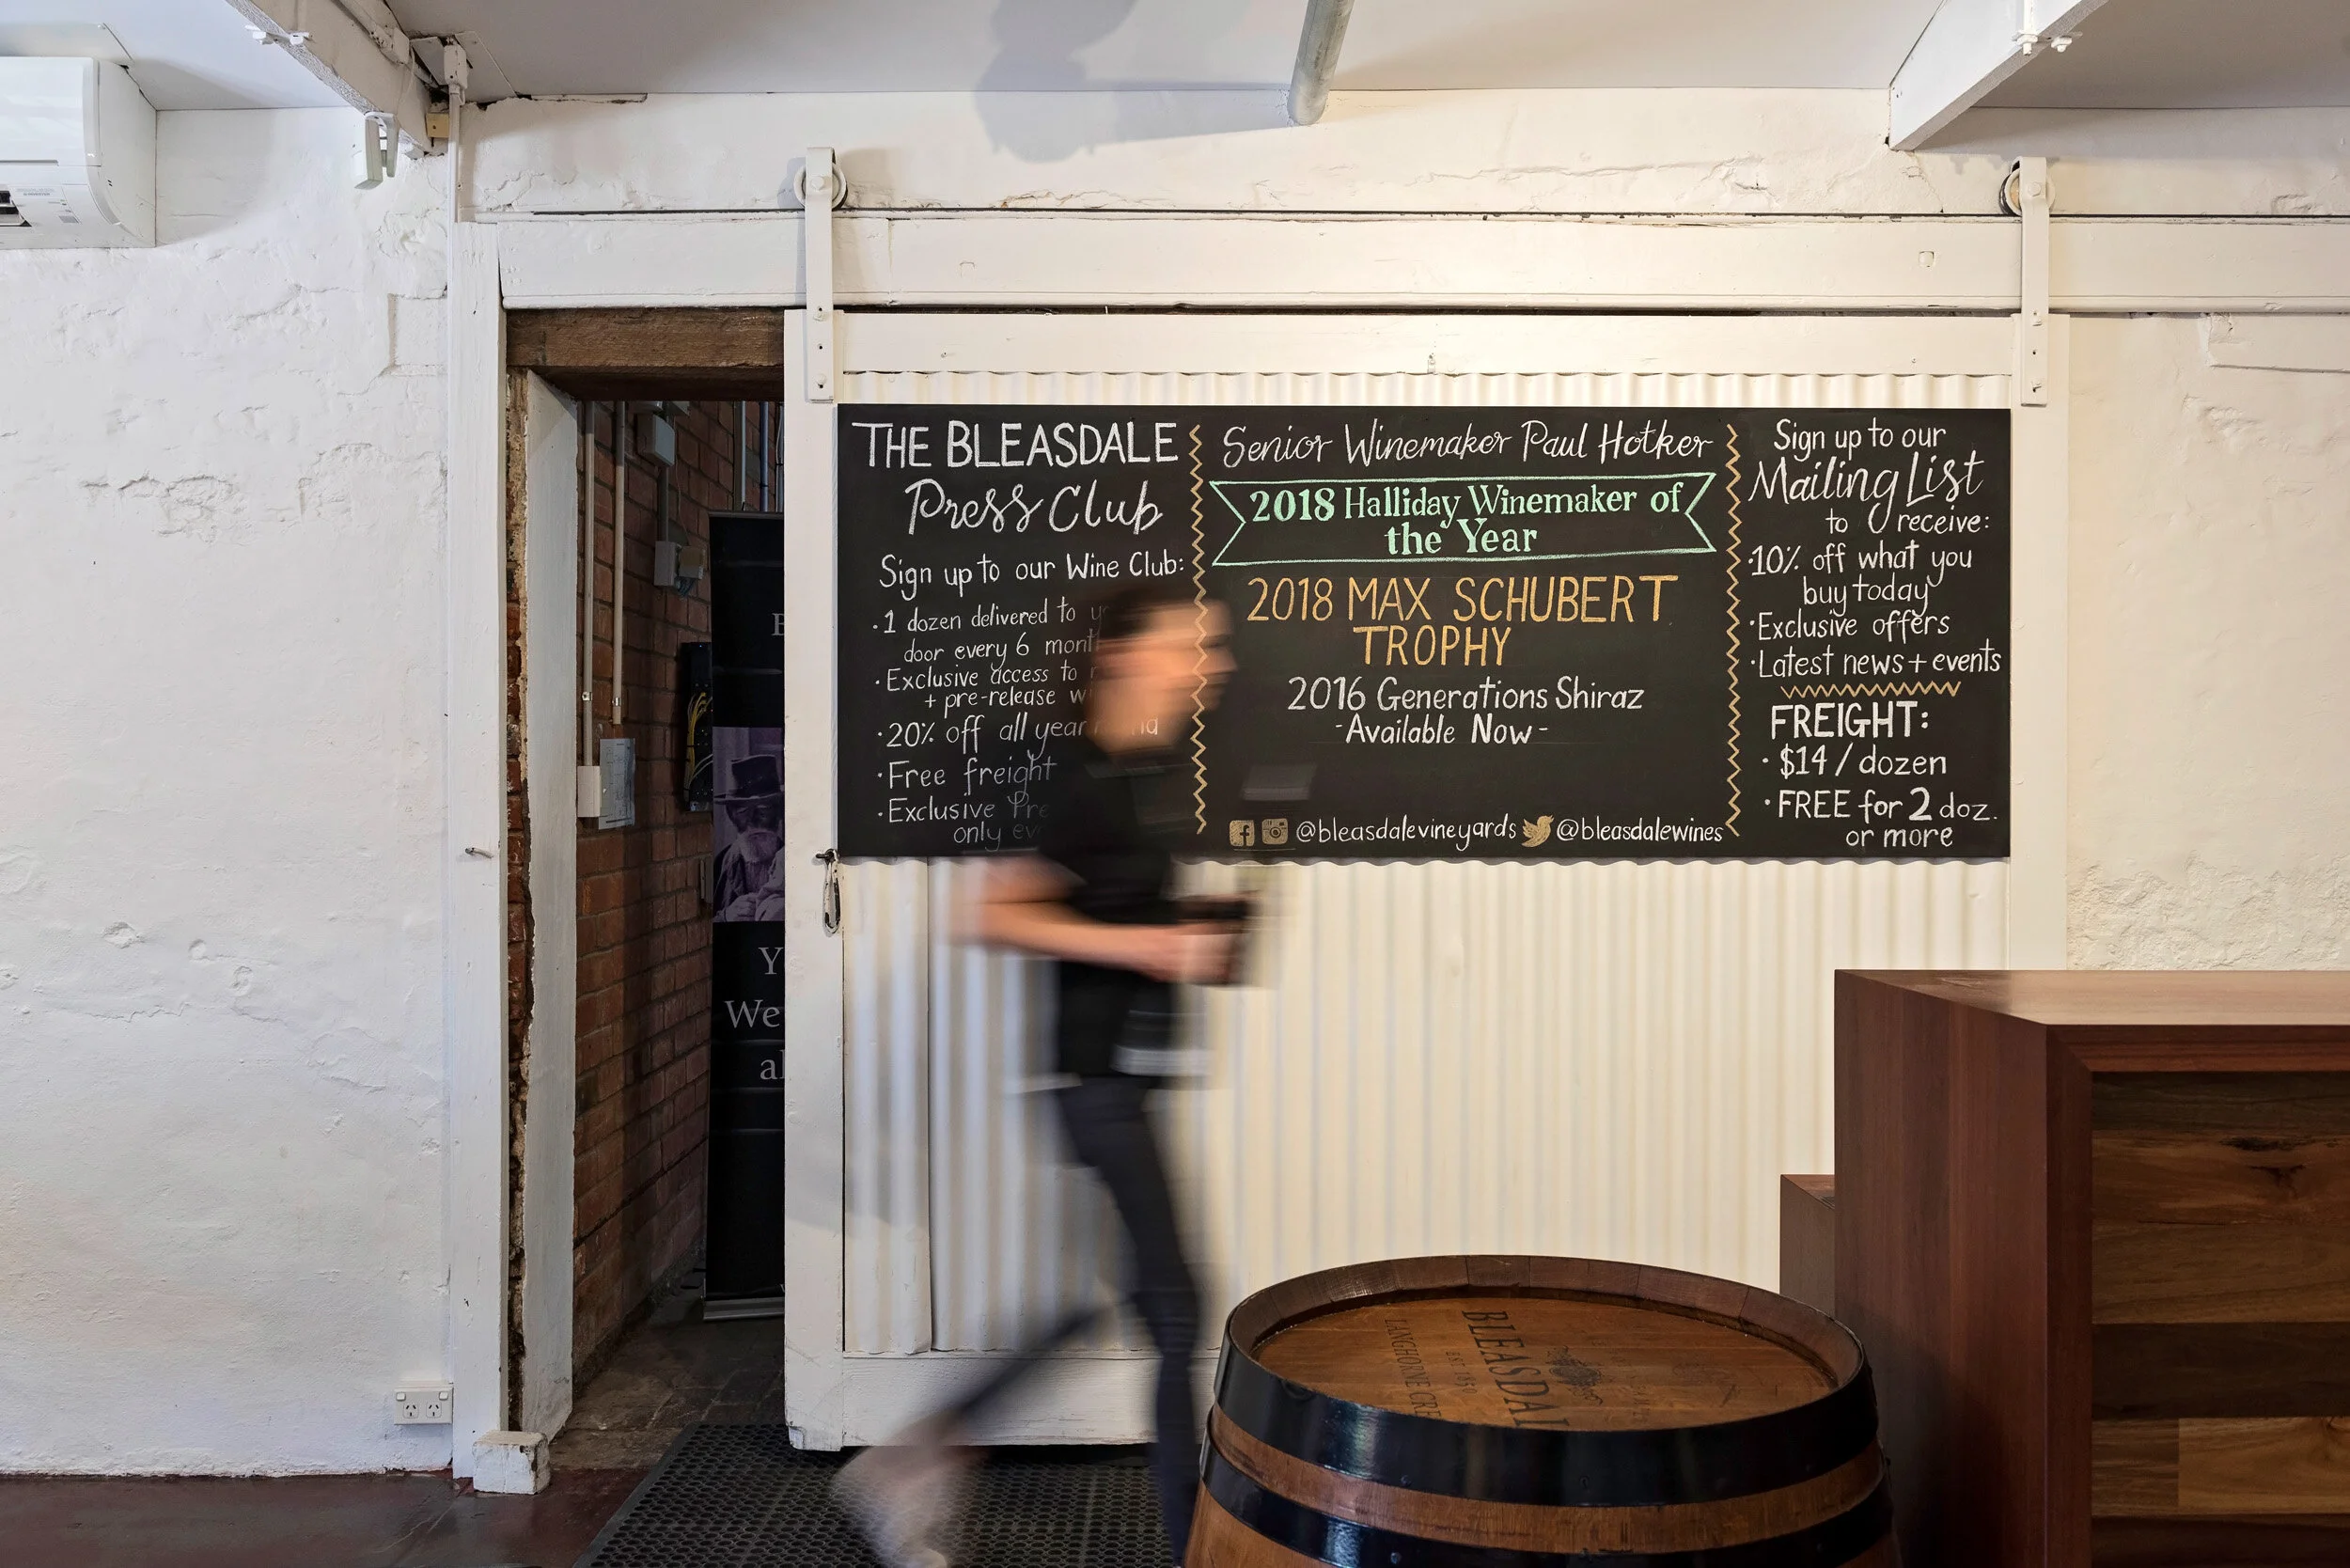 THE BLEASDALE
Press Club
Sign up to our Wine Club:
·1 dozen delivered to
door every 6
·Exclusive access to
+ pre-release
·20% off all year
·Free freight
·Exclusive
only
Senior Winemaker Paul Hotker
2018 Halliday Winemaker of
the Year
2018 MAX SCHUBERT
TROPHY
2016 Generations Shiraz
-Available Now-
@bleasdalevineyards @bleasdalewines
Sign up to our
Mailing List
to receive:
·10% off what you
buy today
·Exclusive offers
·Latest news + events
FREIGHT:
·$14 / dozen
·FREE for 2 doz.
or more
We
BLEASDAL
EST 1850
LANGHORNE CRE